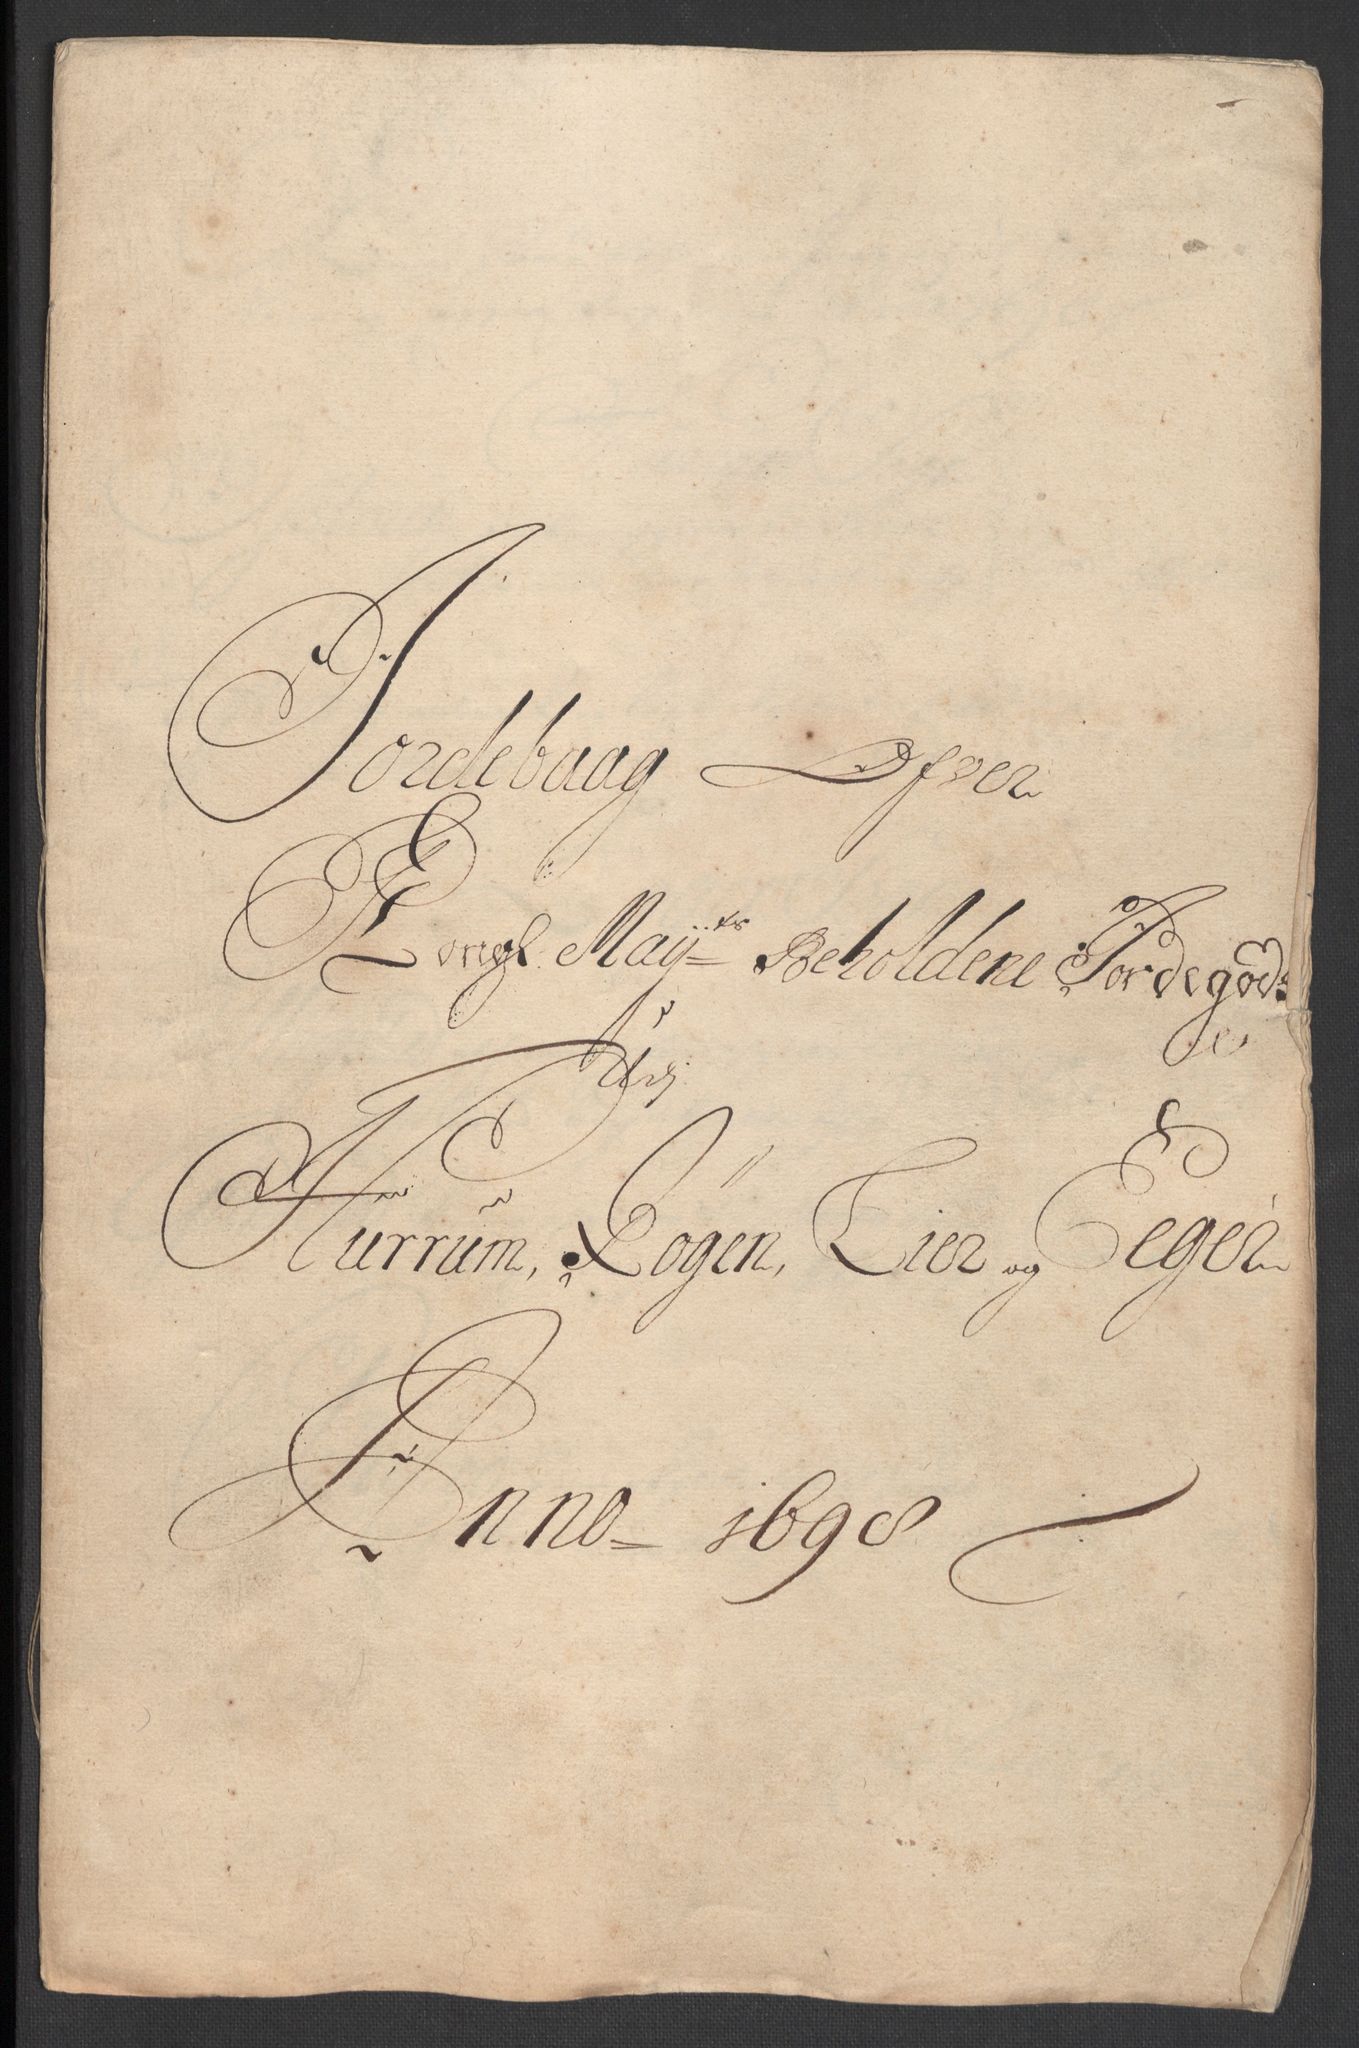 Jordebaag Ofver
Kongl. Mayts Beholdene Jordegods
e
Udj
Hurrum, Røgen, Lier og Eeger
Anno 1698